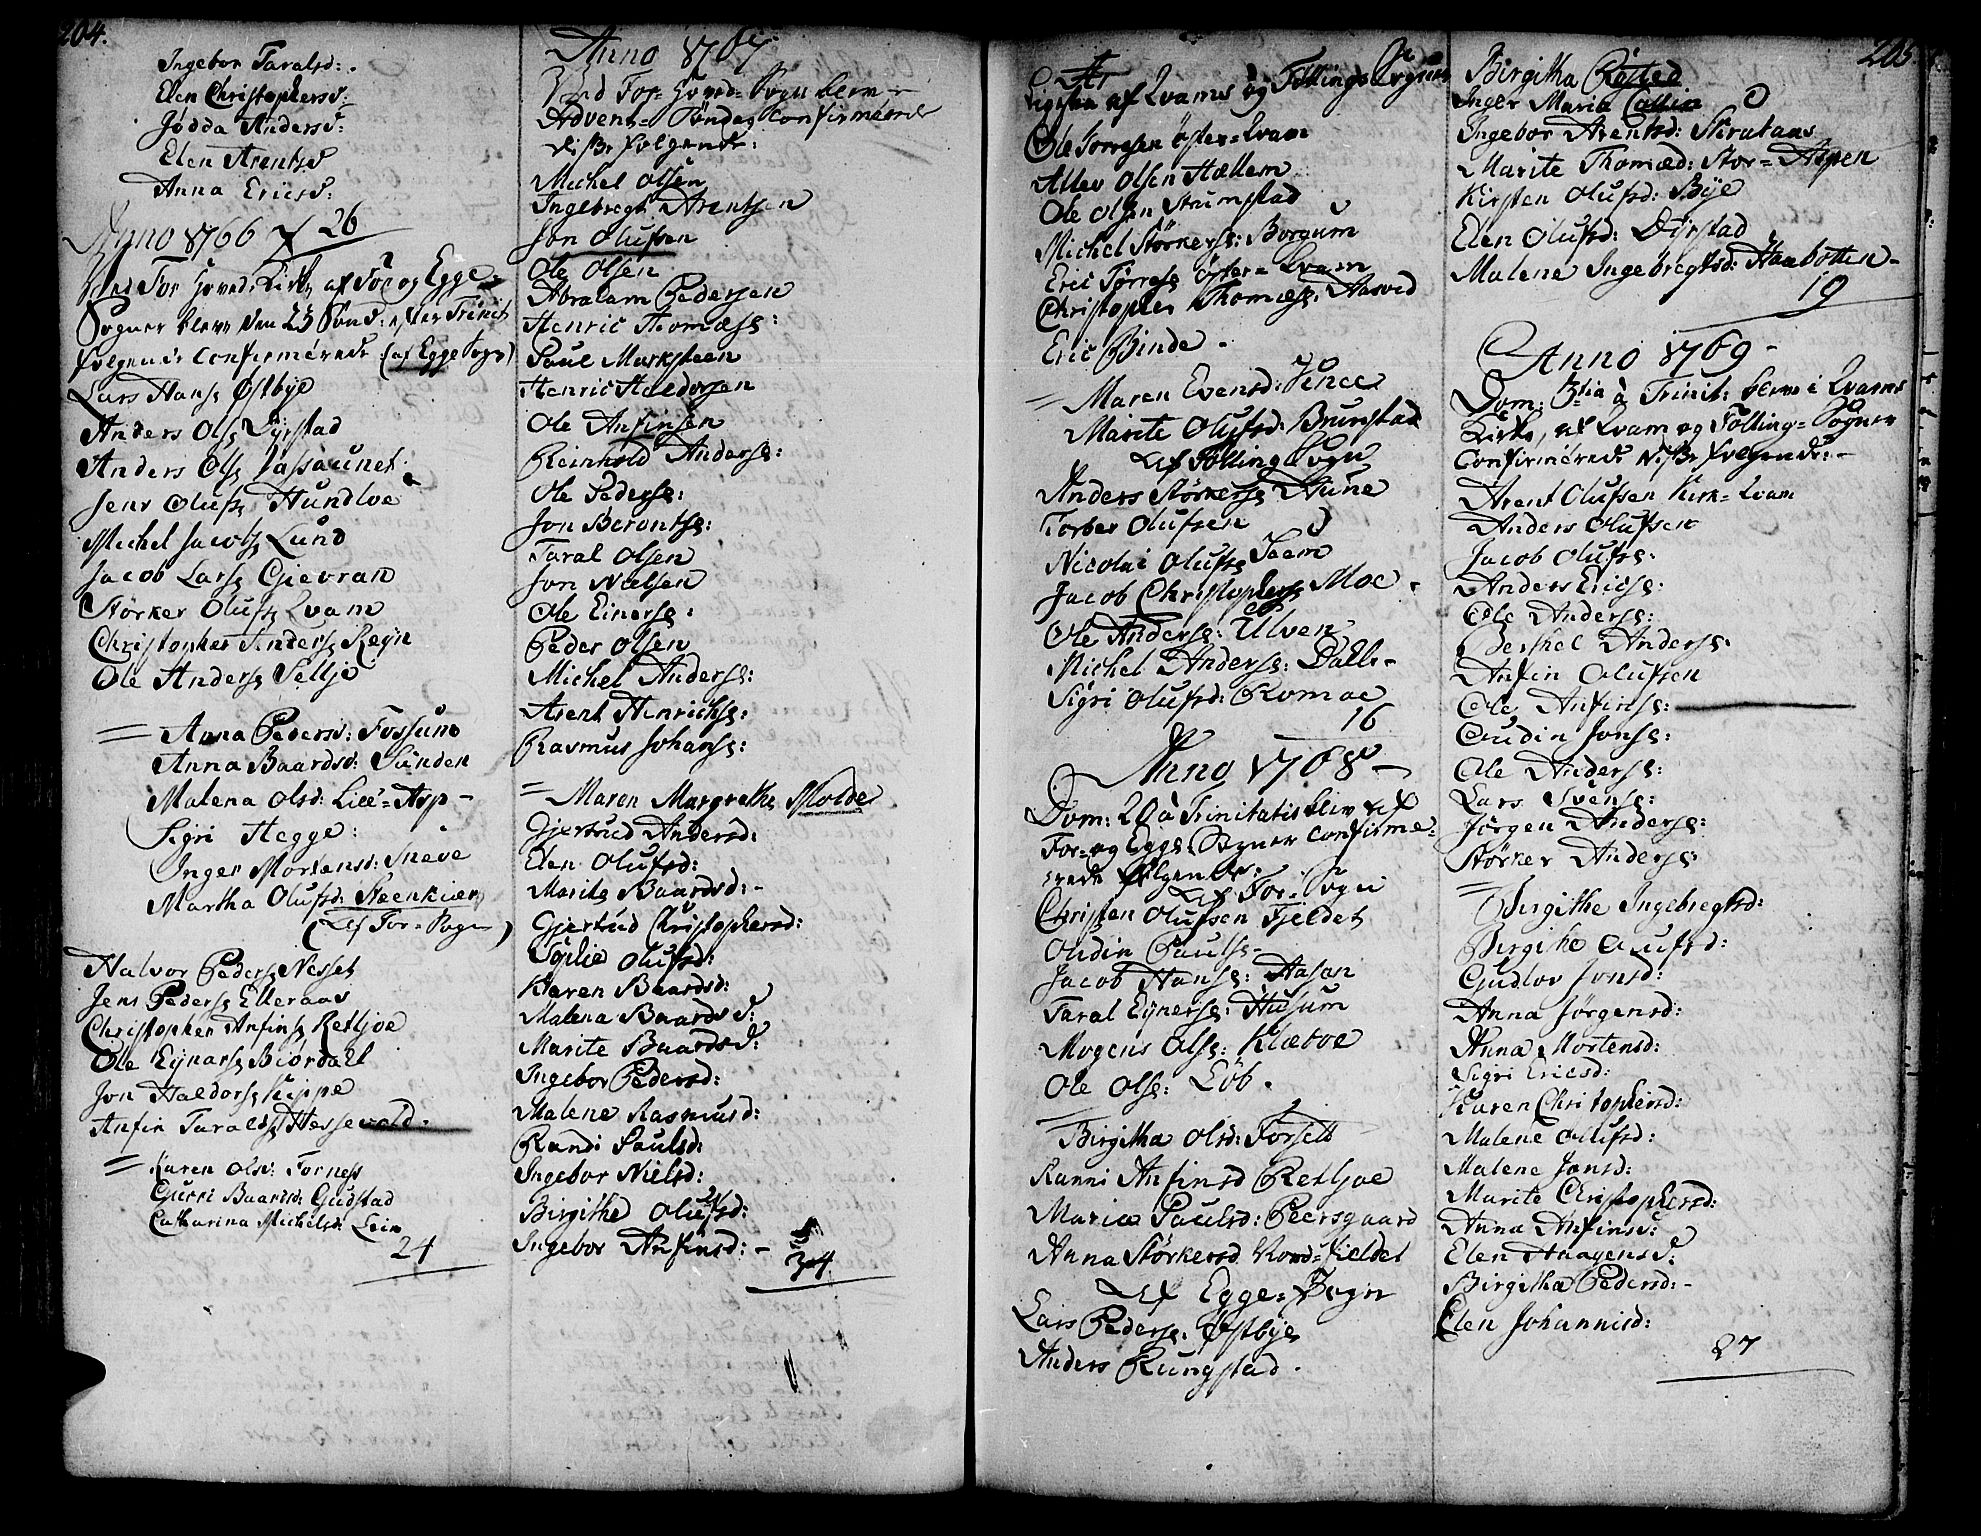 204.
Ingebor Taralsd:
Elen Christophersd:
Jødda Andersd:
Elen Arentsd
Anna Ericsd:
26
Anno 1766
Ved For Hoved-Kirke af For og Egge
Sogner bleve den 25 Sønd: efter Trinit
følgende Confirmerede (af Egge Sogn)
Lars Hans: Østbye
Anders Ols: Dyrstad
Anders Ols: Lassaunet
Jens Olufs: Hundloe
Michel Jacobs: Lund
Jacob Lars: Gievran
Størker Olufs: Qvam
Christopher Anders: Regn
Ole Anders: Sellje
Anna Pedersd: Fossum
Anna Baardsd: Sunden
Malena Olsd: Lill-Asp
Sigri Hegge:
Inger Mortensd: Sneve
Martha Olufsd: Steenkier
(Af For-Sogn)
Halvor Peders: Nesset
Jens Peders: Elleraas
Christopher Anfins: Retljoe
Ole Eynars: Biordall
Jon Haldors: Kippe
Anfin Tarals: Hessevold
Karen Olsd: Forness
Gurri Baardsd: Gudstad
Catharina Michelsd: Lein
24
Anno 1767
Ved For-Hoved-Sogn blev
Advent-Søndag Confirmered
disse følgende:
Michel Olsen
Ingebregt Arentsen
Jon Olufsen
Ole Olsen
Abraham Pedersen
Henric Thomæss:
Paul Marksteen
Henric Haldorsen
Ole Anfinsen
Reinhold Anderss:
Ole Pederss:
Jon Berentss:
Taral Olsen
Jon Nielsen
Ole Einerss:
Peder Olsen
Michel Anderss:
Arent Henrichss:
Rasmus Johanss:
Maren Margrethe Molde
Gjertrud Andersd:
Elen Olufsd:
Marite Baardsd:
Gjertrud Christophersd:
Sidlie Olufsd:
Karen Baardsd:
Malena Baardsd:
Marite Baardsd:
Ingebor Pedersd:
Malene Rasmusd:
Randi Paulsd:
Ingebor Nielsd:
Birgithe Olufsd:
Ingebor Anfinsd:
34
af Qvams og Føllings Sogner
Ole Torresen Øster-Qvam
Atlev Olsen Hællem
Ole Olsen Strumstad
Michel Størkerss: Borgum
Eric Torress: Øster-Qvam
Christopher Thomæss: Aasved
Eric Binde
Maren Evensd: Vence
Marite Olufsd: Brunstad
Af Følling Sogn
Anders Størkerss: Aune
Torber Olufsen
Nicolai Olufss: Seem
Jacob Christopherss: Moe
Ole Anderss: Ulven
Michel Anderss: Dall
Sigri Olufsd: Romoe
16
Anno 1768
Dom: 20 à Trinitatis blev af
For- og Egge Sogner Confirme-
rede følgende:
Af For-Sogn
Christen Olufsen Fjeldet
Oudin Paulss
Jacob Hanss: Aasan
Taral Eynerss: Husum
Mogens Olss: Klæboe
Ole Olss: Løb
Birgitha Olsd: Forsett
Ranni Anfinsd Retljoe
Marie Paulsd: Peersgaard
Anna Størkersd Nord-Fjeldet
Af Egge-Sogn
Lars Pederss: Østbye
Anders Rungstad
205
Birgitha Røsted
Inger Maria Collin
Ingebor Arentsd: Skrataas
Marite Thomæd: Stor-Aspen
Kirsten Olufsd: Bye
Elen Olufsd: Dyrstad
Malene Ingebregtsd: Haabotten
19
Anno 1769
Dom: 3tia à Trinit: blev i Qvams
Kirke, af Qvam og Følling-Sogner
Confirmerede disse følgende:
Arent Olufsen Kirk-Qvam
Anders Olufsen
Jacob Olufss:
Anders Ericss:
Ole Anderss:
Bershel Anderss:
Anfin Olufsen
Ole Anfinss:
Oudin Jonss:
Ole Anderss:
Lars Svenss:
Jørgen Anderss:
Størker Anderss:
Birgithe Ingebregtsd:
Birgithe Olufsd:
Gudlov Jonsd:
Anna Jørgensd:
Anna Mortensd:
Sigri Ericsd:
Karen Christophersd:
Malene Olufsd:
Malene Jonsd:
Marite Christophersd:
Anna Anfinsd:
Elen Haagensd:
Birgitha Pedersd:
Elen Johannisd:
27